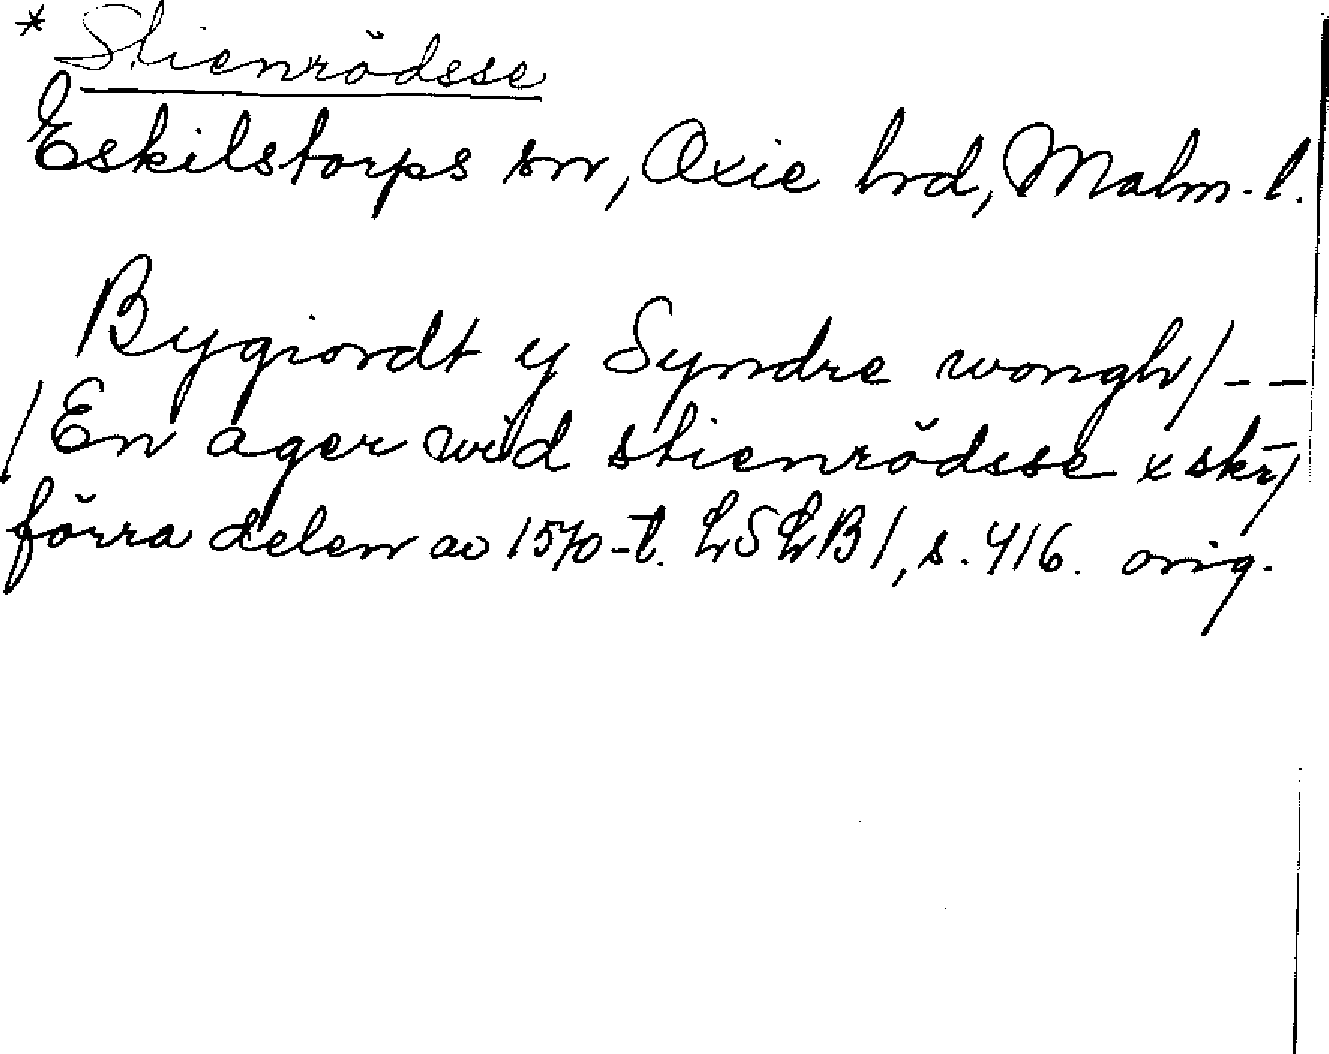 * Stienrödsse
Eskilstorps sn, Oxie hrd, Malm. l.
Bygiordt y Syndre wongh/ - -
/En ager wed stienrödsse x skr/
förra delen av 1570-t. LSLB 1, s. 416. orig.